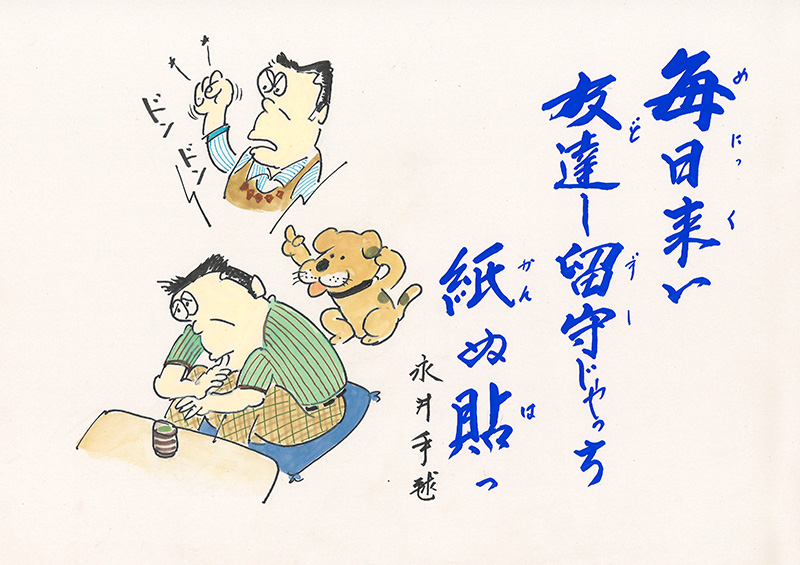 毎日来い
めにっく
友達ー留守じゃっち
どずー
紙ぬ貼っ
かんは
永井手毬
ドンドン